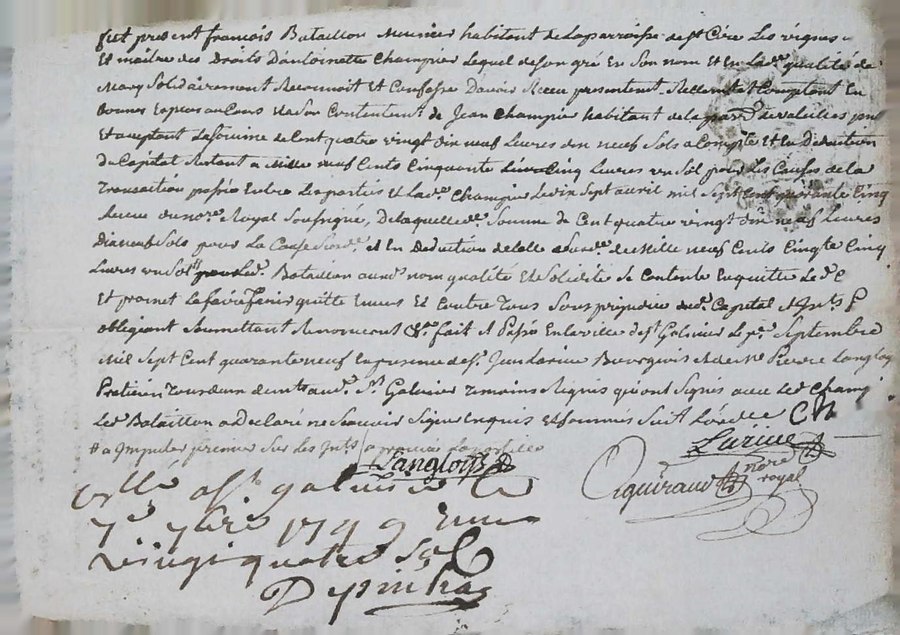 fut present francois Bataillon Meunier habitant de la parroisse de st Cire Les vignes
Et maitre des Droits D'antoinette Champier Lequel de son gré En Son nom Et En La de qualité de
Mary Solidairement Reconnoit Et Confesse D'avoir Receu presentemt. Reellemt Et Comptant En
bonnes Especes au Cours Et a Son Contentemt. de Jean Champier habitant de la parr. de valeilles pnt
Et aceptant La Somme de Cent quatre vingt dix neuf Livres dix neuf Sols a Compte Et En Deduction
du Capital Restant a Mille neuf Cents Cinquante Cinq Livres un Sol pour Les Causes de la
Transaction passée Entre Les parties Et La de. Champier Le vin Sept avril mil Sept Cent quarante Cinq
Receue du nore. Royal Soussigné, De laquelle de. Somme de Cent quatre vingt dix neuf Livres
Dix neuf Sols pour La Cause Et En Deduction de Celle de Mille neuf Cents Cinqte Cinq
Livres un Sol Led. Bataillon aux nom qualité Et Solidité Se Contente En quitte Le d. C
Et promet Le faire Tenir quitte Envers Et Contre Tous Sans prejudice dud. Capital Et Ints. P
obligeant Soumettant Renonceant &a. fait Et Passé En la ville de st Galmier Le pr. Septembre
Mil Sept Cent quarante neuf En presence de sr. Jean Larive Bourgeois Et de Me Pierre Langloi
Praticien Tous deux demts au d. St Galmier Temoins Requis qui ont Signés avec Led. Champ
Led. Bataillon a Declaré ne Scavoir Signer Enquis et Sommés Suit
# a Imputer premier Sur Les Ints.
Langlois
Larive
Aguiraud nore royal
Cllé a st galmier le
7e 7bre 1749
vingt quatre sols
Despinhas